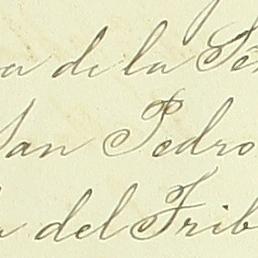 a de la Se
San Pedro
del Trib